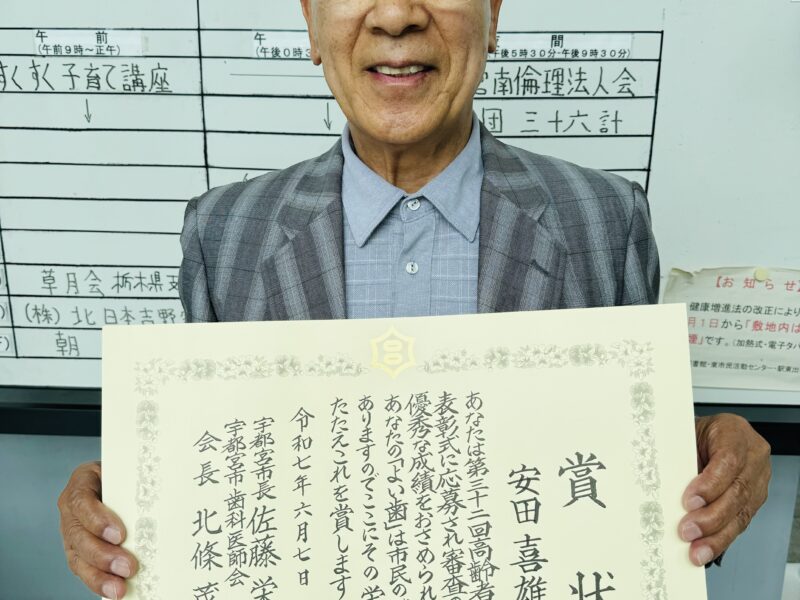 午 前
(午前9時〜正午)
すくすく子育て講座
↓
草月会 栃木県支
(株) 北日本吉野
朝
午
(午後0時3
↓
間
午後5時30分-午後9時30分)
宮南倫理法人会
団 三十六計
【お知らせ】
健康増進法の改正により
月1日から「敷地内は
煙」です。(加熱式・電子タバ
書館・東市民活動センター・駅東出
賞状
安田喜雄
あなたは第三十二回高齢者
表彰式に応募され審査の
優秀な成績をおさめられ
あなたの「よい歯」は市民の
ありますのでここにその栄
たたえこれを賞します
令和七年六月七日
宇都宮市長 佐藤栄
宇都宮市歯科医師会
会長 北條茂